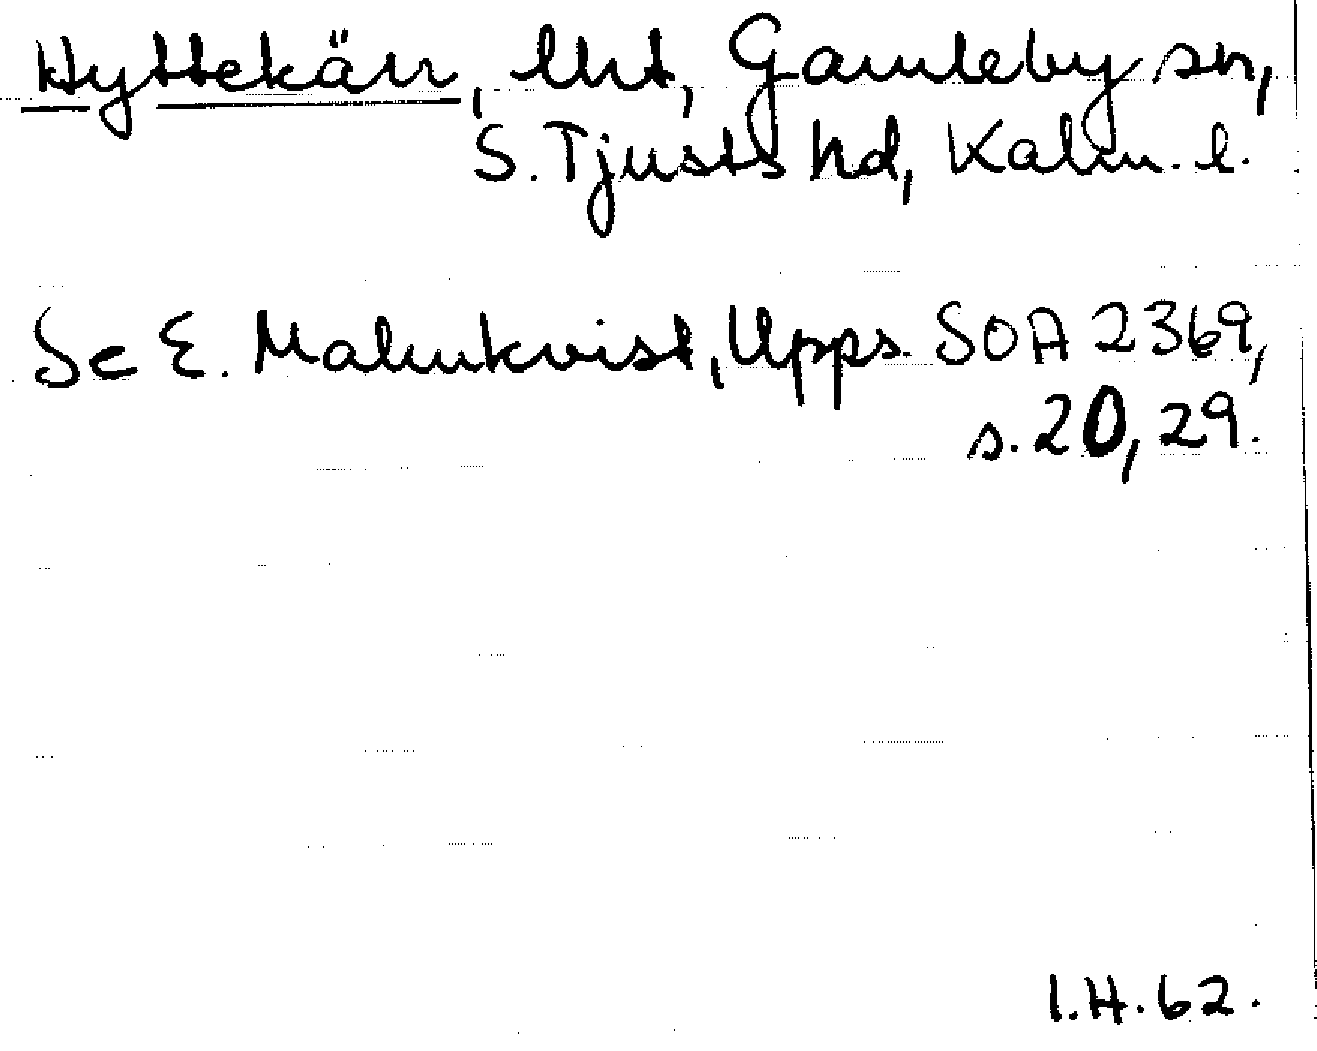 Hyttekärr, lht, Gamleby sn,
S. Tjusts hd, Kalm. l.
Se E. Malmkvist, Upps. SOA 2369,
s. 20, 29.
I.H. 62.